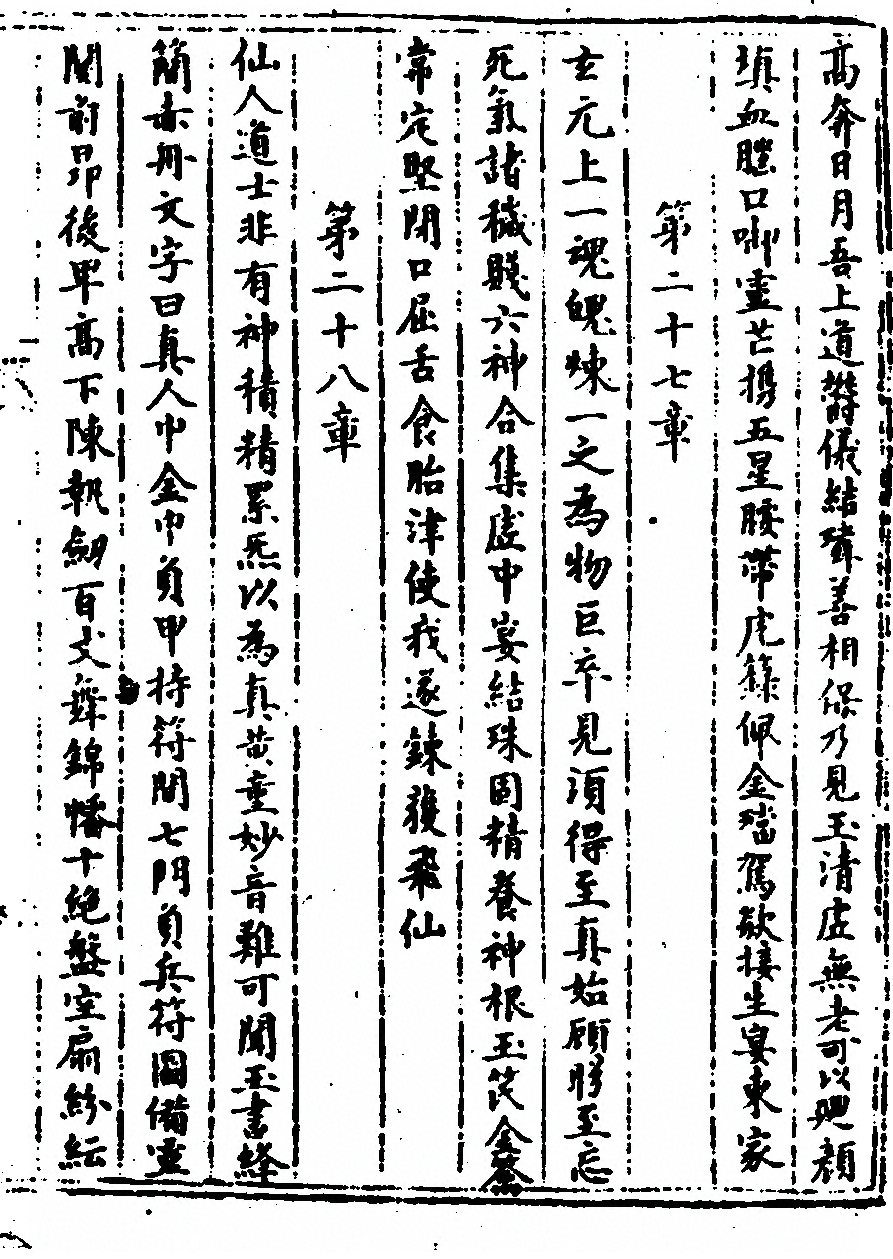 高奔日月吾上道欝儀結璘善相保乃見玉清虛無老可以廻顏
填血腦口啣靈芒携五星腰帶虎籙佩金璫駕欻接生宴東家
第二十七章
玄元上一魂魄煉一之為物巨卒見湏得至真始顧眄至忌
死氣諸穢賤六神合集虛中宴結珠固精養神根玉笢金籥
常完堅閉口屈舌食胎津使我遂鍊獲飛仙
第二十八章
仙人道士非有神積精累炁以為真黃童妙音難可聞玉書絳
簡赤丹文字曰真人巾金巾負甲持符開七門負兵符圖備靈
関前昂後卑高下陳執劍百丈舞錦幡十絕盤空扇紛紜